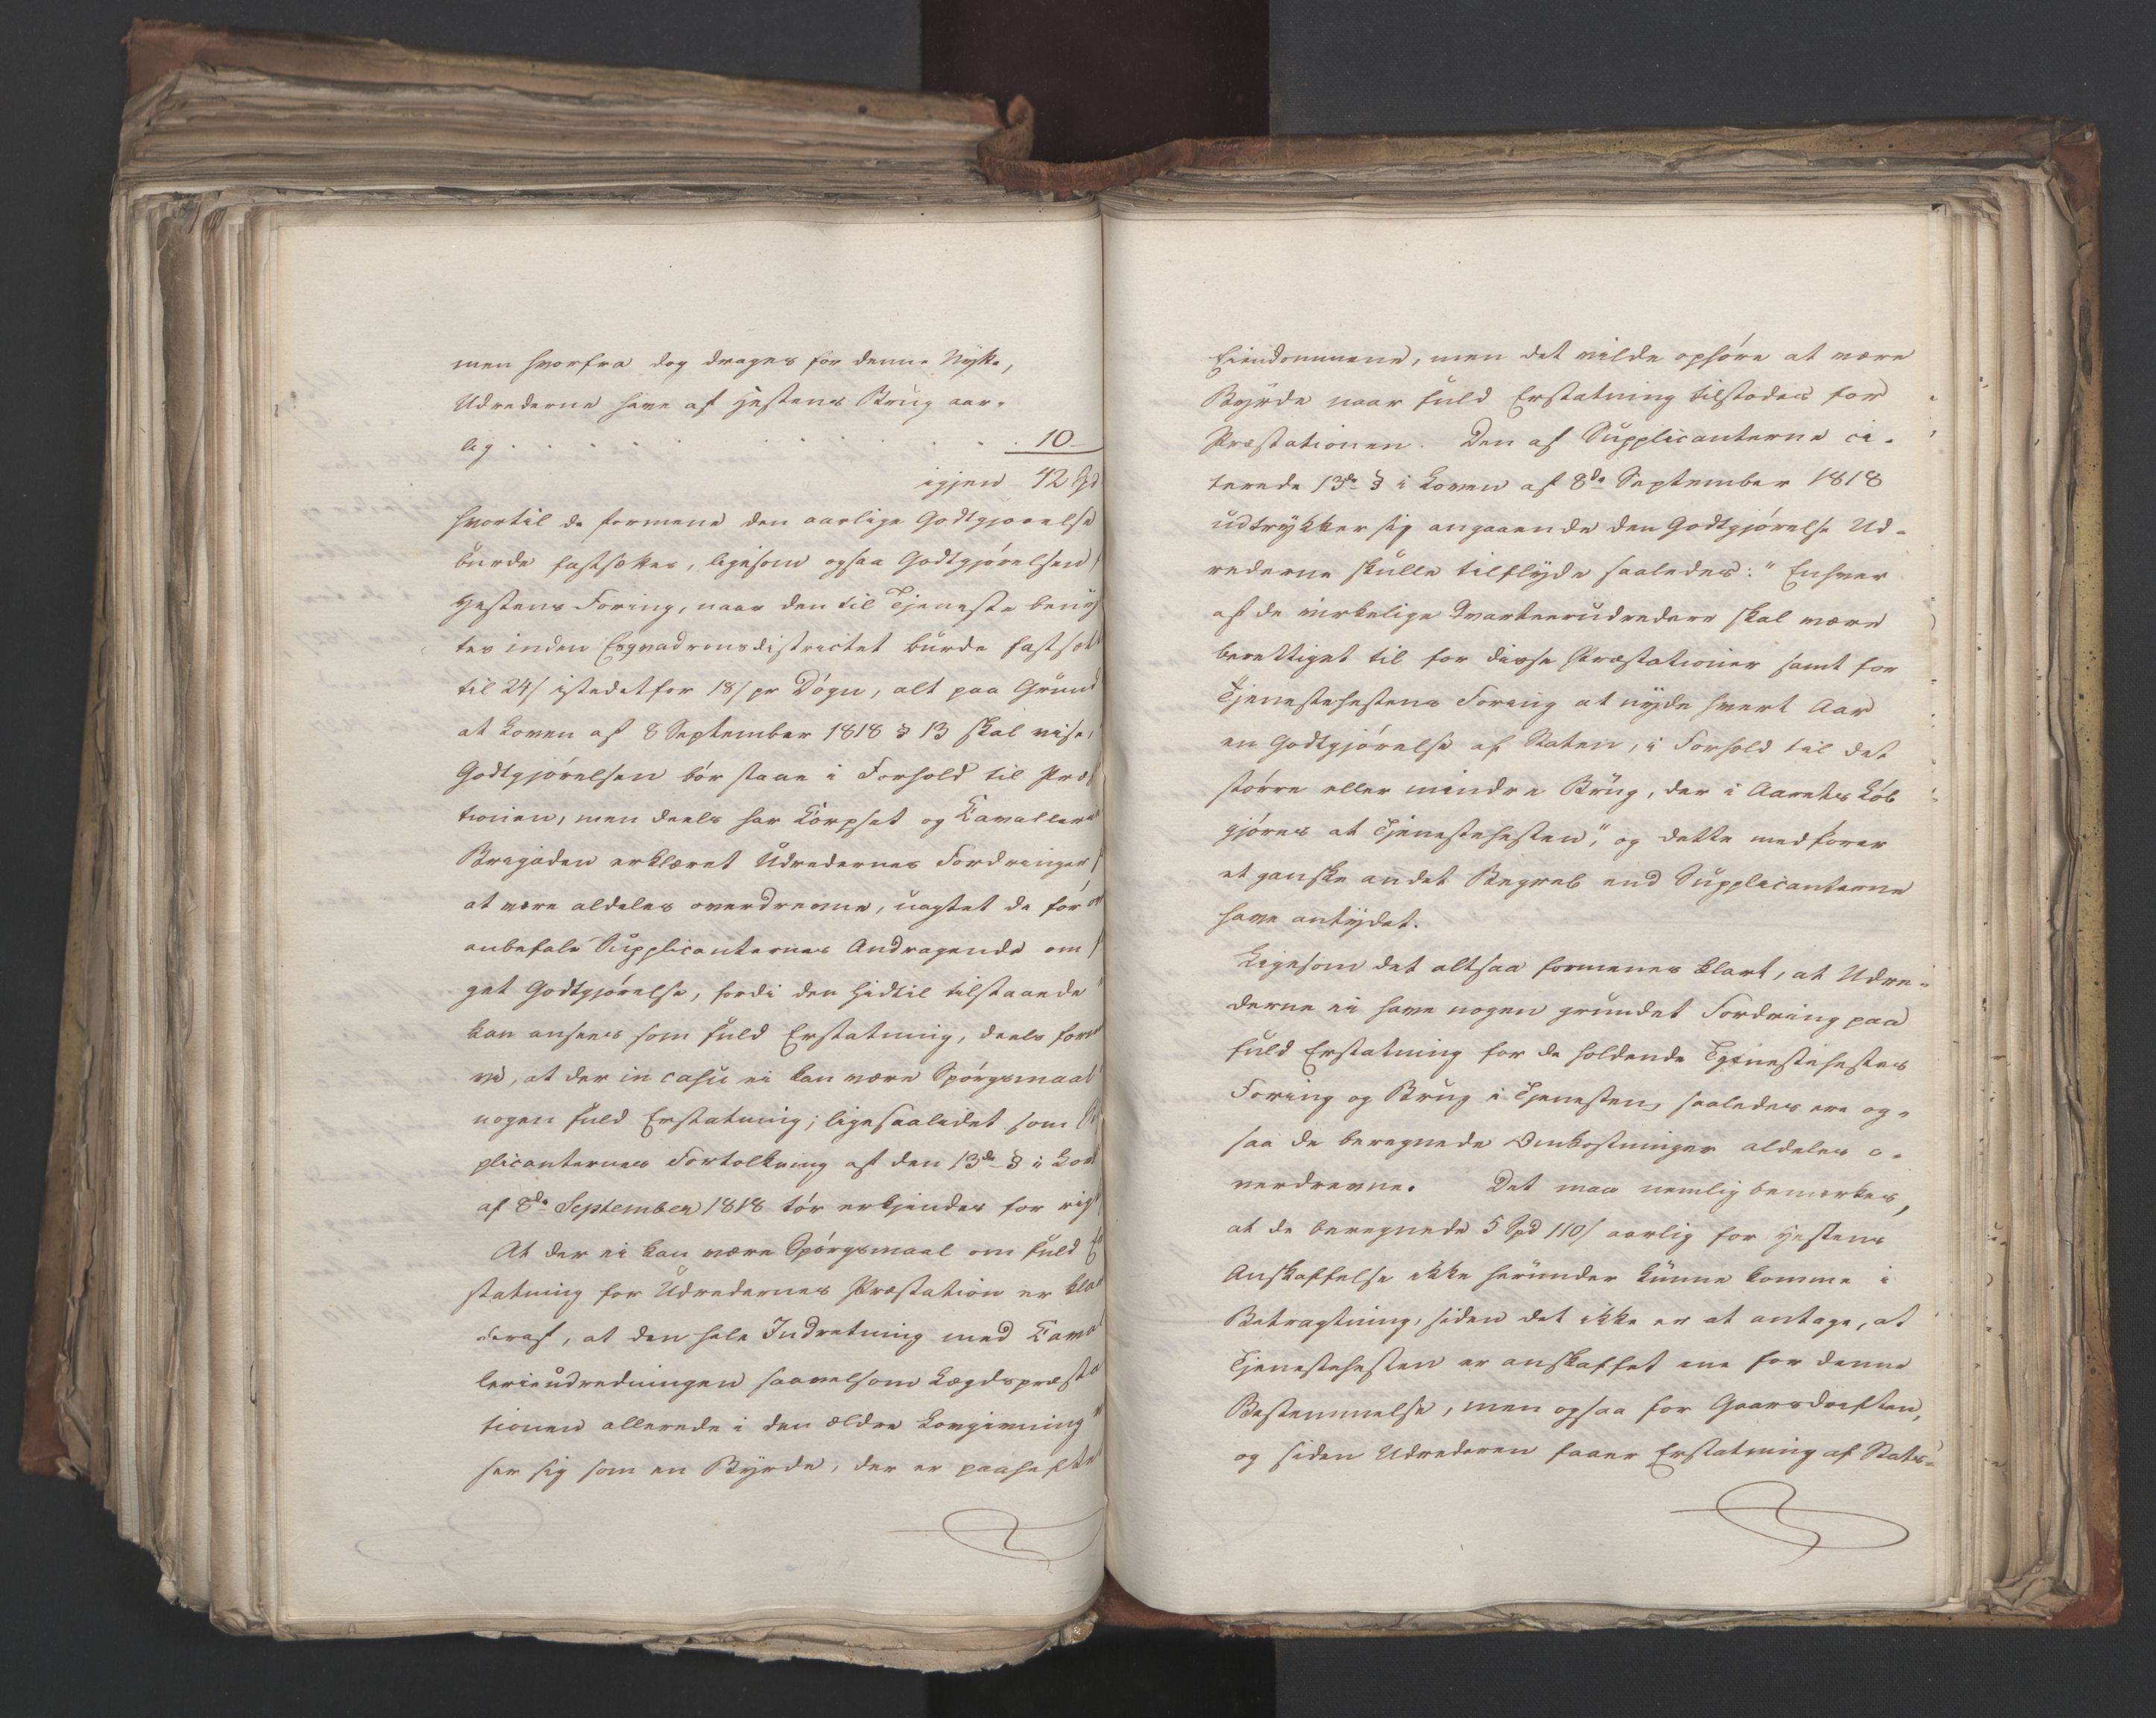 men hvorfra dog drages for denne Nytte,
Udrederne have af Hestens Brug aar-
lig . . . . . . . . . . 10
igjen 42 Spd
hvortil de formene den aarlige Godtgjørelse
burde fastsættes, ligesom ogsaa Godtgjørelsen f
Hestens Foring, naar den til Tjeneste beny
tes inden Esqvadronsdistrictet burde fastsæt
til 24/ istedetfor 18/ pr Døgn, alt paa Grund
at Loven af 8 September 1818 § 13 skal vise,
Godtgjørelsen bør staae i Forhold til Præst
tionen, men deels har Corpset og Cavalleri
Brigaden erklæret Udredernes Fordringer f
at være aldeles overdrevne, uagtet de før
anbefale Supplicanternes Andragende om f
get Godtgjørelse, fordi den hidtil tilstaaede
kan ansees som fuld Erstatning, deels form
vi, at der in casu ei kan være Spørgsmaal
nogen fuld Erstatning; ligesaalidet som S
plicanternes Fortolkning af den 13de § i Lov
af 8de September 1818 tør erkjendes for rig
At der ei kan være Spørgsmaal om fuld E
statning for Udredernes Præstation er kla
deraf, at den hele Indretning med Caval
lerieudredningen saavelsom Lægdspræsta
tionen allerede i den ældre Lovgivning
ser sig som en Byrde, der er paaheftet
Eiendommene, men det vilde ophøre at være
Byrde naar fuld Erstatning tilstodes for
Præstationen. Den af Supplicanterne ci-
terede 13de § i Loven af 8de September 1818
udtrykker sig angaaende den Godtgjørelse Ud-
rederne skulle tilflyde saaledes: "Enhver
af de virkelige Qvarteerudredere skal være
berettiget til for disse Præstationer samt for
Tjenestehestens Foring at nyde hvert Aar
en Godtgjørelse af Staten, i Forhold til det
større eller mindre Brug, der i Aarets Løb
gjøres at Tjenestehesten," og dette medfører
et ganske andet Begreb end Supplicanterne
have antydet.
Ligesom det altsaa formenes klart, at Udre-
derne ei have nogen grundet Fordring paa
fuld Erstatning for de holdende Tjenestehestes
Foring og Brug i Tjenesten, saaledes ere og-
saa de beregnede Omkostninger aldeles o-
verdrevne. Det maa nemlig bemærkes,
at de beregnede 5 Spd 110/ aarlig for Hestens
Anskaffelse ikke herunder kunne komme i
Betragtning, siden det ikke er at antage, at
Tjenestehesten er anskaffet ene for denne
Bestemmelse, men ogsaa for Gaardsdriften,
og siden Udrederen faaer Erstatning af Stats-